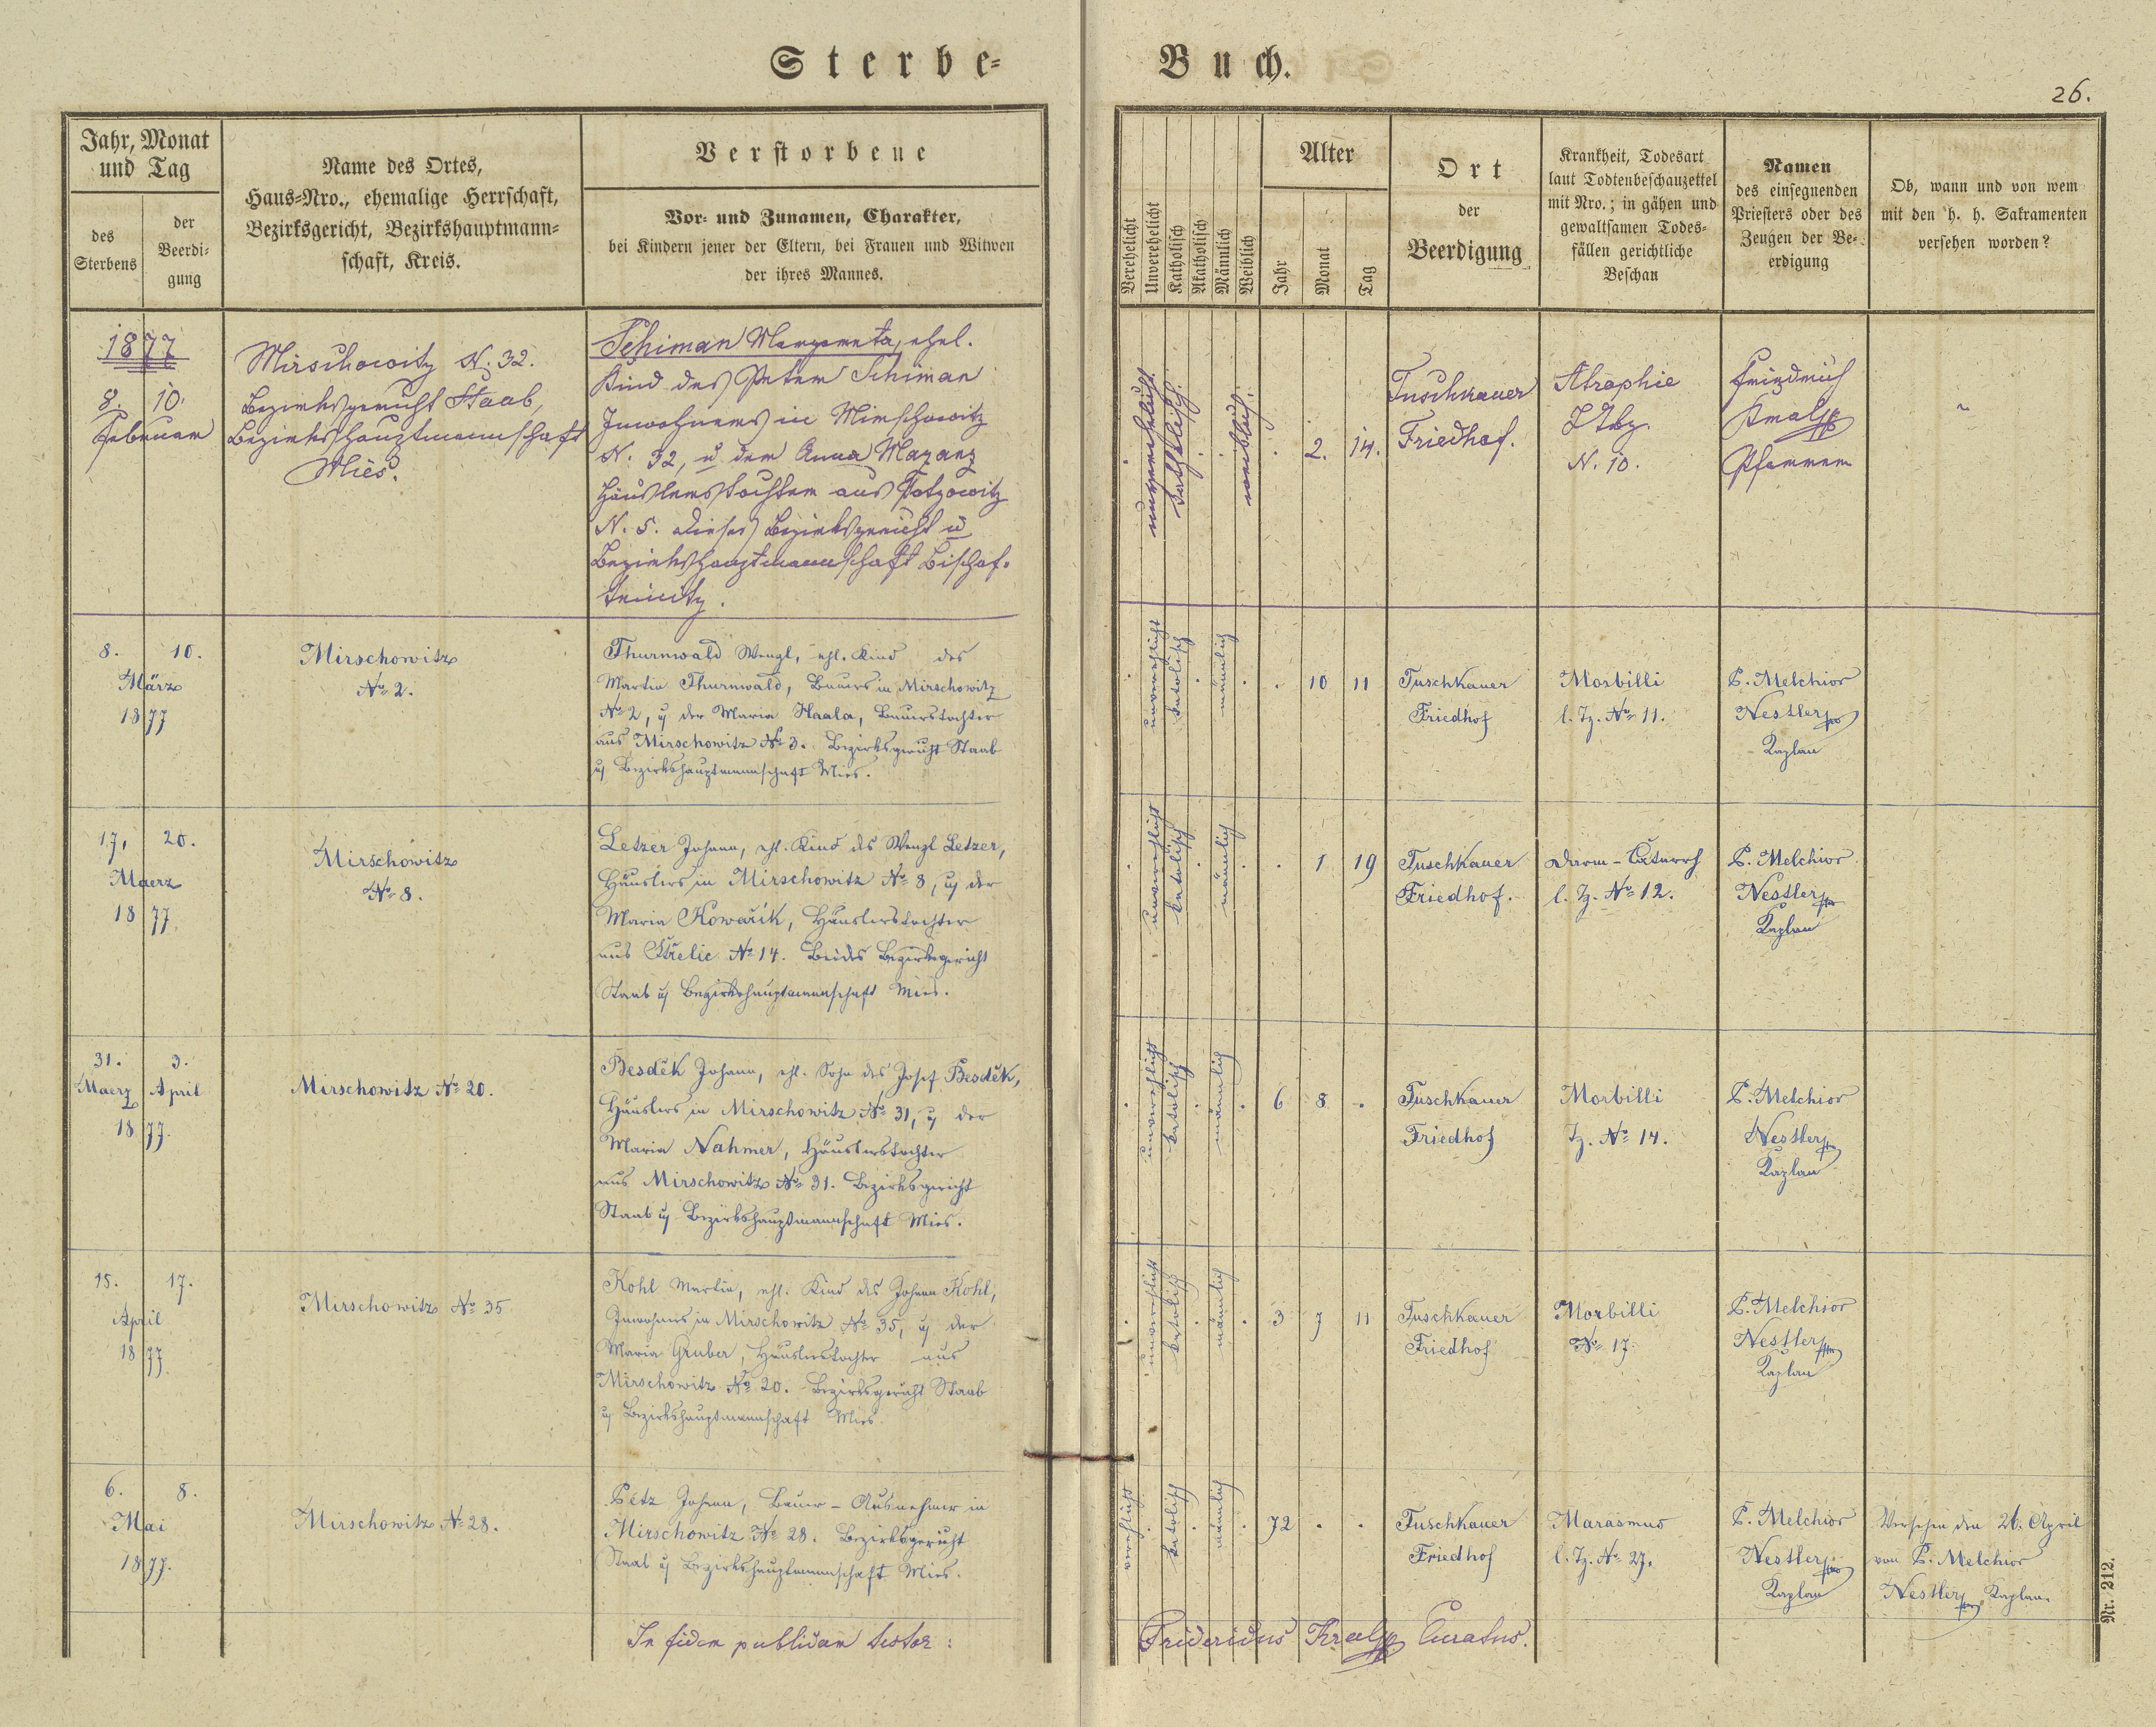 Sterbe-
Buch.
26.
Jahr, Monat
und Tag
des
Sterbens
der
Beerdi-
gung
Name des Ortes,
Haus-Nro., ehemalige Herrschaft,
Bezirksgericht, Bezirkshauptmann-
schaft, Kreis.
Verstorbene
Vor- und Zunamen, Charakter,
bei Kindern jener der Eltern, bei Frauen und Witwen
der ihres Mannes.
Verehelicht
Unverehelicht
Katholisch
Akatholisch
Männlich
Weiblich
Alter
Jahr
Monat
Tag
Ort
der
Beerdigung
Krankheit, Todesart
laut Todtenbeschauzettel
mit Nro.; in gähen und
gewaltsamen Todes-
fällen gerichtliche
Beschau
Namen
des einsegnenden
Priesters oder des
Zeugen der Be-
erdigung
Ob, wann und von wem
mit den h. h. Sakramenten
versehen worden?
1877
8. 10.
Februar
Mirschowitz N. 32.
Bezirksgericht Staab,
Bezirkshauptmannschaft
Mies.
Schiman Margareta, ehel.
Kind des Peter Schiman
Inwohners in Mirschowitz
N. 32, u der Anna Mayanz
Häuslerstochter aus
N. 5. dieses Bezirksgericht u
Bezirkshauptmannschaft Bischof-
teinitz.
unverehelicht
katholisch.
weiblich.
2. 14.
Tuschkauer
Friedhof.
Atrophie
N. 10.
Friedrich
Kral
Pfarrer
8. 10.
März
1877
Mirschowitz
No 2.
Thurnwald Wenzl, ehl. Kind des
Martin Thurnwald, Bauers in Mirschowitz
No 2, u der Maria Haala, Bauerstochter
aus Mirschowitz No 3. Bezirksgericht Staab
u Bezirkshauptmannschaft Mies.
unverehlicht
katolisch
männlich
10 11
Tuschkauer
Friedhof
Morbilli
l. Tz. No 11.
P. Melchior
Nestler
Kaplan
17. 20.
Maerz
1877
Mirschowitz
No 8.
Letzer Johann, ehl. Kind des Wenzl Letzer,
Häuslers in Mirschowitz No 8, u der
Maria Kowařik, Häuslerstochter
aus Střelic No 14. Beides Bezirksgericht
Staab u Bezirkshauptmannschaft Mies.
unverehlicht
katolisch
männlich
1 19
Tuschkauer
Friedhof.
Darm-Catarrh
l. Tz. No 12.
P. Melchior
Nestler
Kaplan
31. 3.
Maerz April
1877.
Mirschowitz No 20.
Besděk Johann, ehl. Sohn des Josef Besděk,
Häuslers in Mirschowitz No 31, u der
Maria Nahmer, Häuslerstochter
aus Mirschowitz No 31. Bezirksgericht
Staab u Bezirkshauptmannschaft Mies.
unverehlicht
katolisch
männlich
6 8
Tuschkauer
Friedhof
Morbilli
Tz. No 14.
P. Melchior
Nestler
Kaplan
15. 17.
April
1877.
Mirschowitz No 35
Kohl Martin, ehl. Kind des Johann Kohl,
Inwohners in Mirschowitz No 35, u der
Maria Gruber, Häuslerstochter aus
Mirschowitz No 20. Bezirksgericht Staab
u Bezirkshauptmannschaft Mies.
unverehlicht
katolisch
männlich
3 7 11
Tuschkauer
Friedhof
Morbilli
No 17.
P. Melchior
Nestler
Kaplan
6. 8.
Mai
1877.
Mirschowitz No 28.
Petz Johann, Bauer-Ausnehmer in
Mirschowitz No 28. Bezirksgericht
Staab u Bezirkshauptmannschaft Mies.
verehlicht
katolisch
männlich
72
Tuschkauer
Friedhof
Marasmus
l. Tz. No 27.
P. Melchior
Nestler
Kaplan
Versehen den 26. April
von P. Melchior
Nestler, Kaplan.
In fidem publicam testor:
Fridericus Kral Curatus.
Nr. 212.